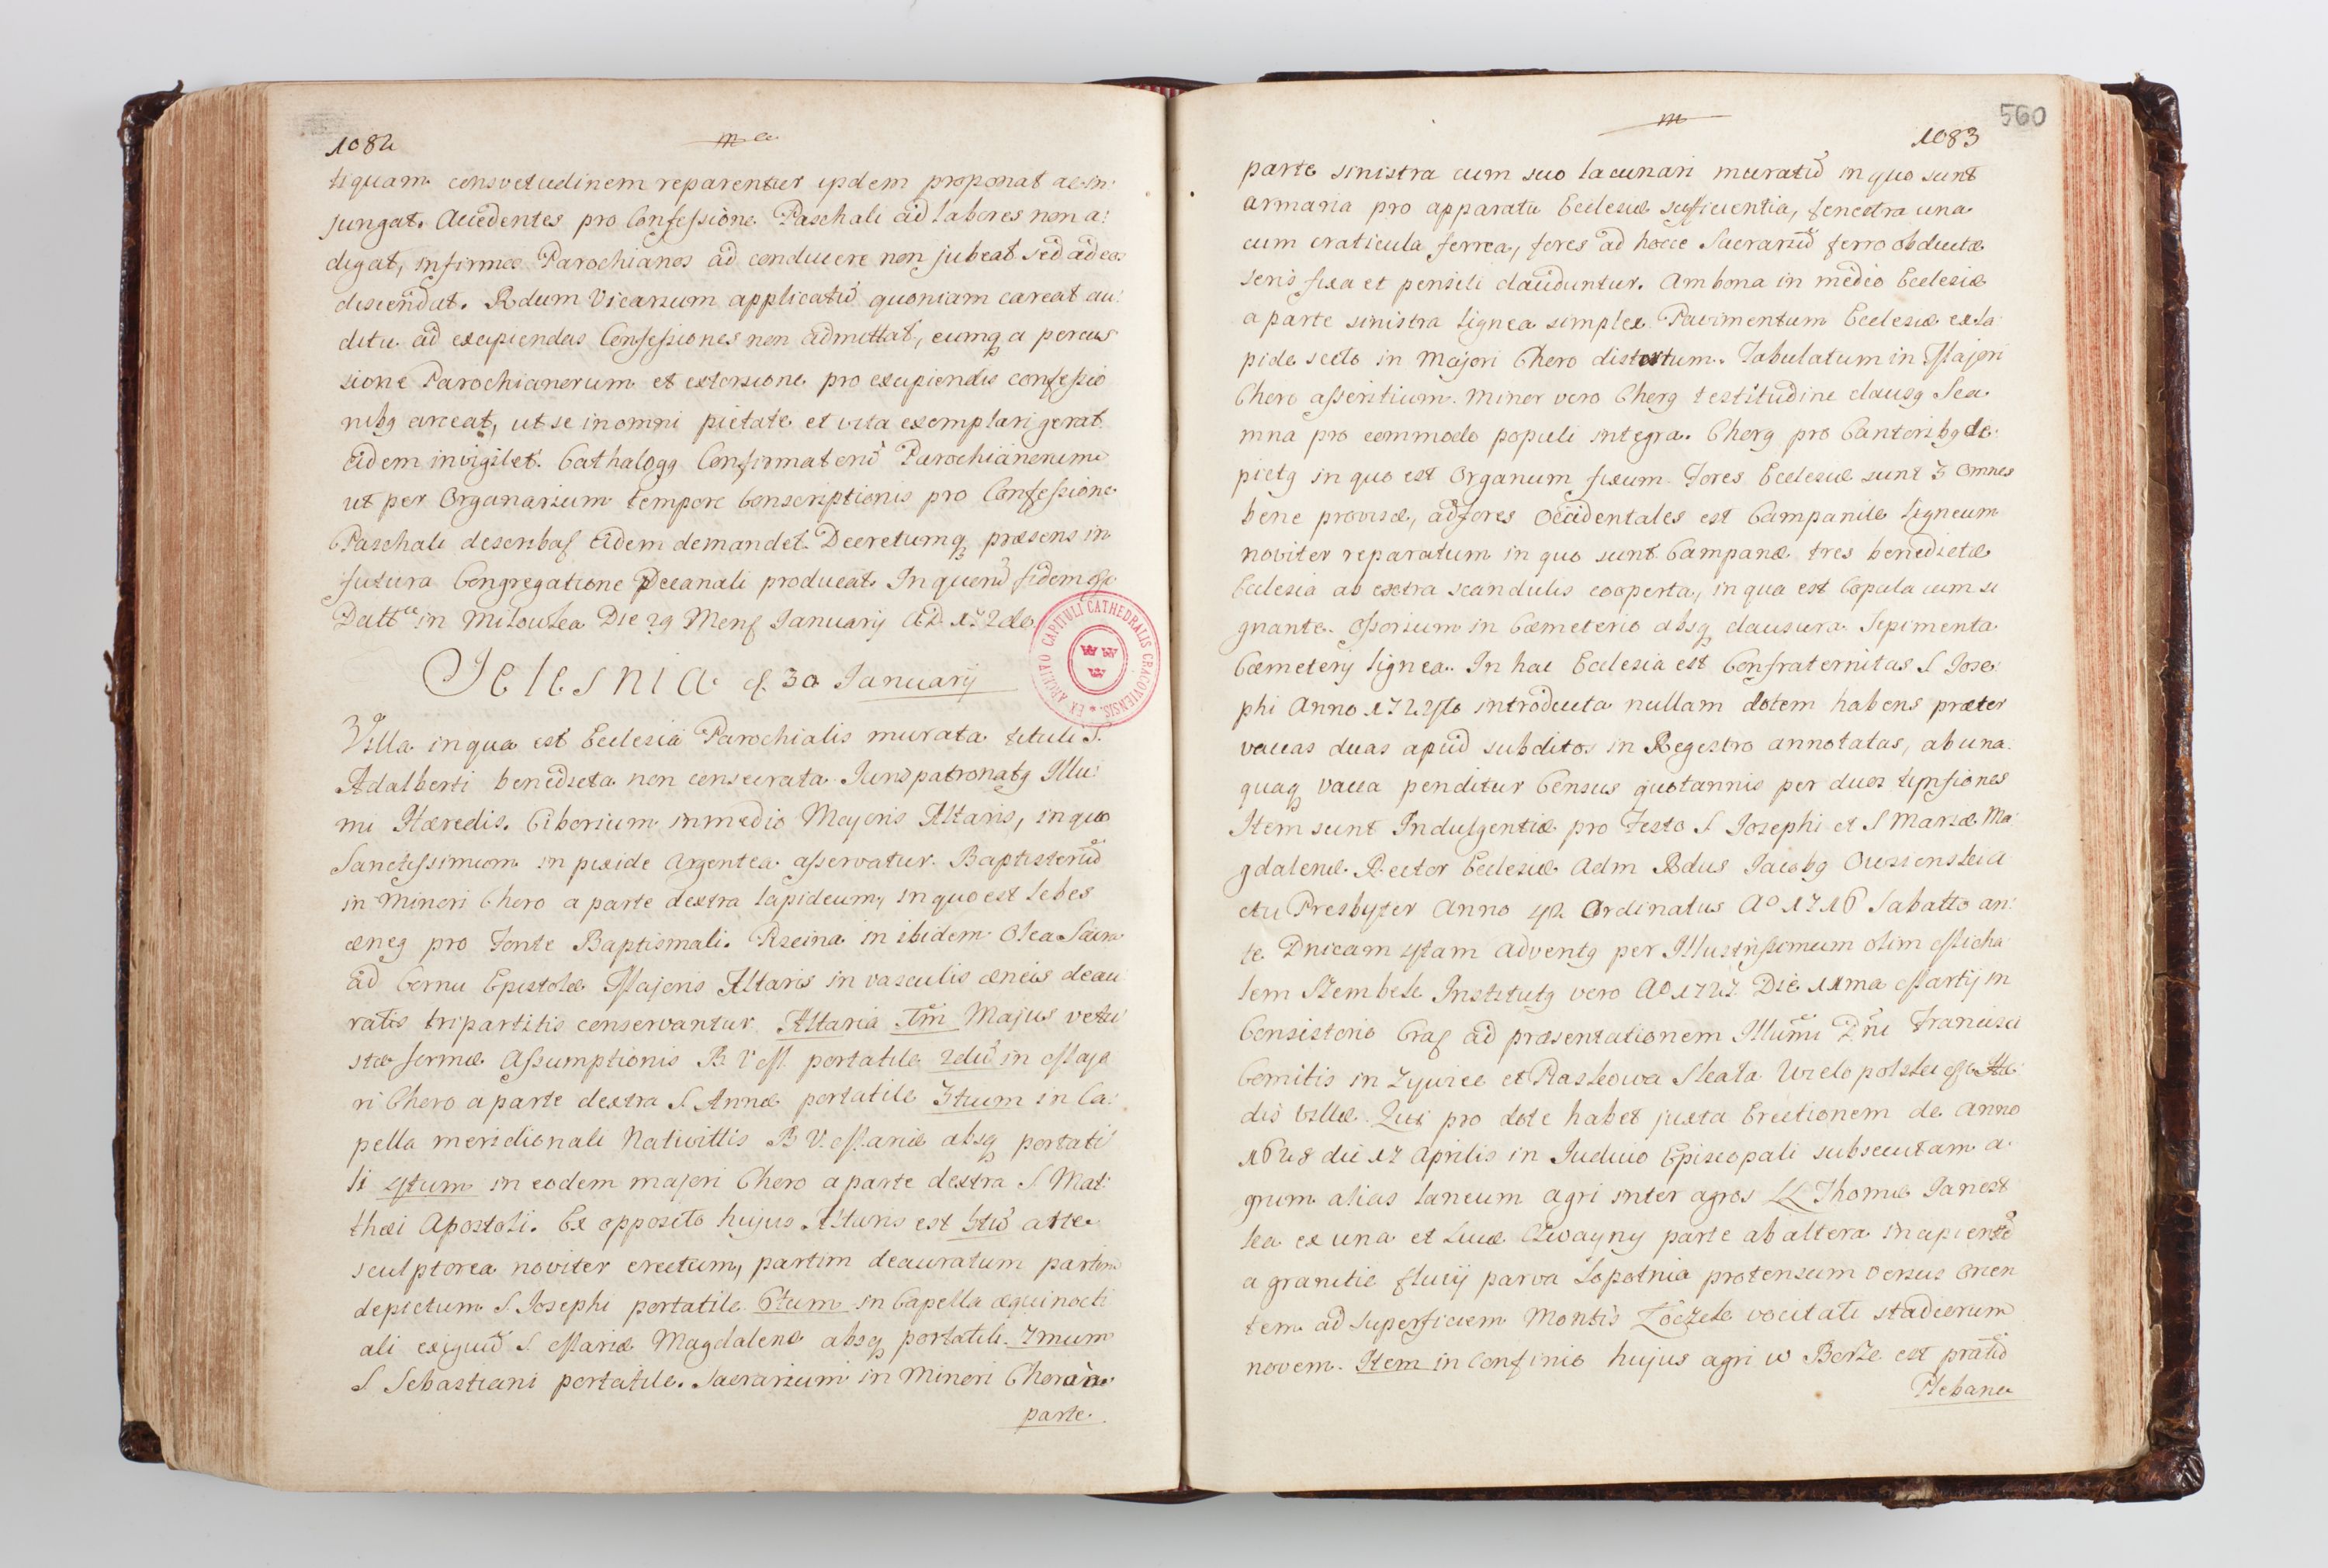 1082
tiquam consvetudinem reparentur ipdem proponat ac in:
jungat. Accedentes pro Confessione Paschali ad labores non a:
digat, infirmos Parochianos ad conducere non jubeat sed ad eos
discendat. Rdum Vicarium applicatũ quoniam careat au:
ditu ad excipiendas Confessiones non admittat, eumq a percus
sione Parochianorum et extorsione pro excipiendis confessio
nibg arceat, ut se in omni pietate et vita exemplari gerat
eidem invigilet. Cathalogg Confirmatorũ Parochianorum
ut per Organarium tempore Conscriptionis pro Confessione
Paschali describat eidem demandet. Decretumq præsens in
futura Congregatione Decanali producat. In quorũ fidem
Datt in Milowka Die 29 Mens Januarij AD
Jelesnia d. 30 Januarij
Villa in qua est Ecclesia Parochialis murata tituli S.
Adalberti benedicta non consecrata Jurispatronatg Illu:
mi Hæredis. Ciborium in medio Majoris Altaris, in quo
Sanctissimum in pixide argentea asservatur. Baptisteriũ
in Minori Choro a parte dextra lapideum, in quo est lebes
æneg pro Fonte Baptismali. Piscina inibidem Olea Sacra
ad Cornu Epistolæ Majoris Altaris in vasculis æneis deau
ratis tripartitis conservantur. Altaria Imũ Majus vetu
stæ formæ Assumptionis B V M. portatile 2dũ in Majo
ri Choro a parte dextra S. Annæ portatile 3tium in Ca:
pella meridionali Nativittis B V. Mariæ absq portati
li 4tum in eodem majori Choro a parte dextra S. Mat:
thæi Apostoli. Ex opposito hujus Altaris est 5tũ arte
sculptorea noviter erectum, partim deauratum partim
depictum S. Josephi portatile 6tum in Capella æquinocti
ali exiguũ S. Mariæ Magdalenæ absq portatili. 7mum
S Sebastiani portatile. Sacrarium in Minori Choro a
parte.
560
1083
parte sinistra cum suo lacunari muratũ in quo sunt
armaria pro apparatu Ecclesiæ sufficientia, fenestra una
cum craticula ferrea, fores ad hocce Sacrariũ ferro obductæ
seris fixa et pensili clauduntur. Ambona in medio Ecclesiæ
a parte sinistra lignea simplex. Pavimentum Ecclesiæ ex la
pide secto in Majori Choro distortum. Tabulatum in Majori
Choro asseritium. Minor vero Chorg testitudine clausg Sca
mna pro commodo populi integra. Chorg pro Cantoribg de:
pictg in quo est Organum fixum. Fores Ecclesiæ sunt 3 omnes
bene provisæ, ad fores Occidentales est Campanile ligneum
noviter reparatum in quo sunt Campanæ tres benedictæ
Ecclesia ab extra scandulis cooperta, in qua est Copula cum si
gnante. Ossorium in Cæmeterio absq clausura. Sepimenta
Cæmeterij lignea. In hac Ecclesia est Confraternitas S Jose:
phi Anno introducta nullam dotem habens præter
vaccas duas apud subditos in Regestro annotatas, ab una
quaq vacca penditur Census quotannis per duos tynfiones
Item sunt Indulgentiæ pro Festo S Josephi et S Mariæ Ma:
gdalenæ. Rector Ecclesiæ Adm Rdus Jacobg
Presbyter Anno 42 Ordinatus Aº 1716 Sabatto an:
te Dnicam 4tam Adventg per Illustrissimum olim Micha
lem Szembek Institutg vero Aº 1727 Die 11ma Martij in
Consistorio Crac ad præsentationem Illũmi Dñi Francisci
Comitis in Zywiec et Pieskowa Skała Wielopolski
dis Villæ. Qui pro dote habet juxta Erectionem de Anno
1628 die 17 Aprilis in Judicio Episcopali subsecutam a
grum alias laneum agri inter agros LL Thomæ Janest
ka ex una et Lucæ parte ab altera incipientẽ
a granitie fluvij parva Sopotnia protensum versus orien
tem ad superficiem Montis vocitati stadiorum
novem. Item in confinio hujus agri w est pratũ
Plebana
EX ARCHIVO CAPITULI CATHEDRALIS CRACOVIENSIS